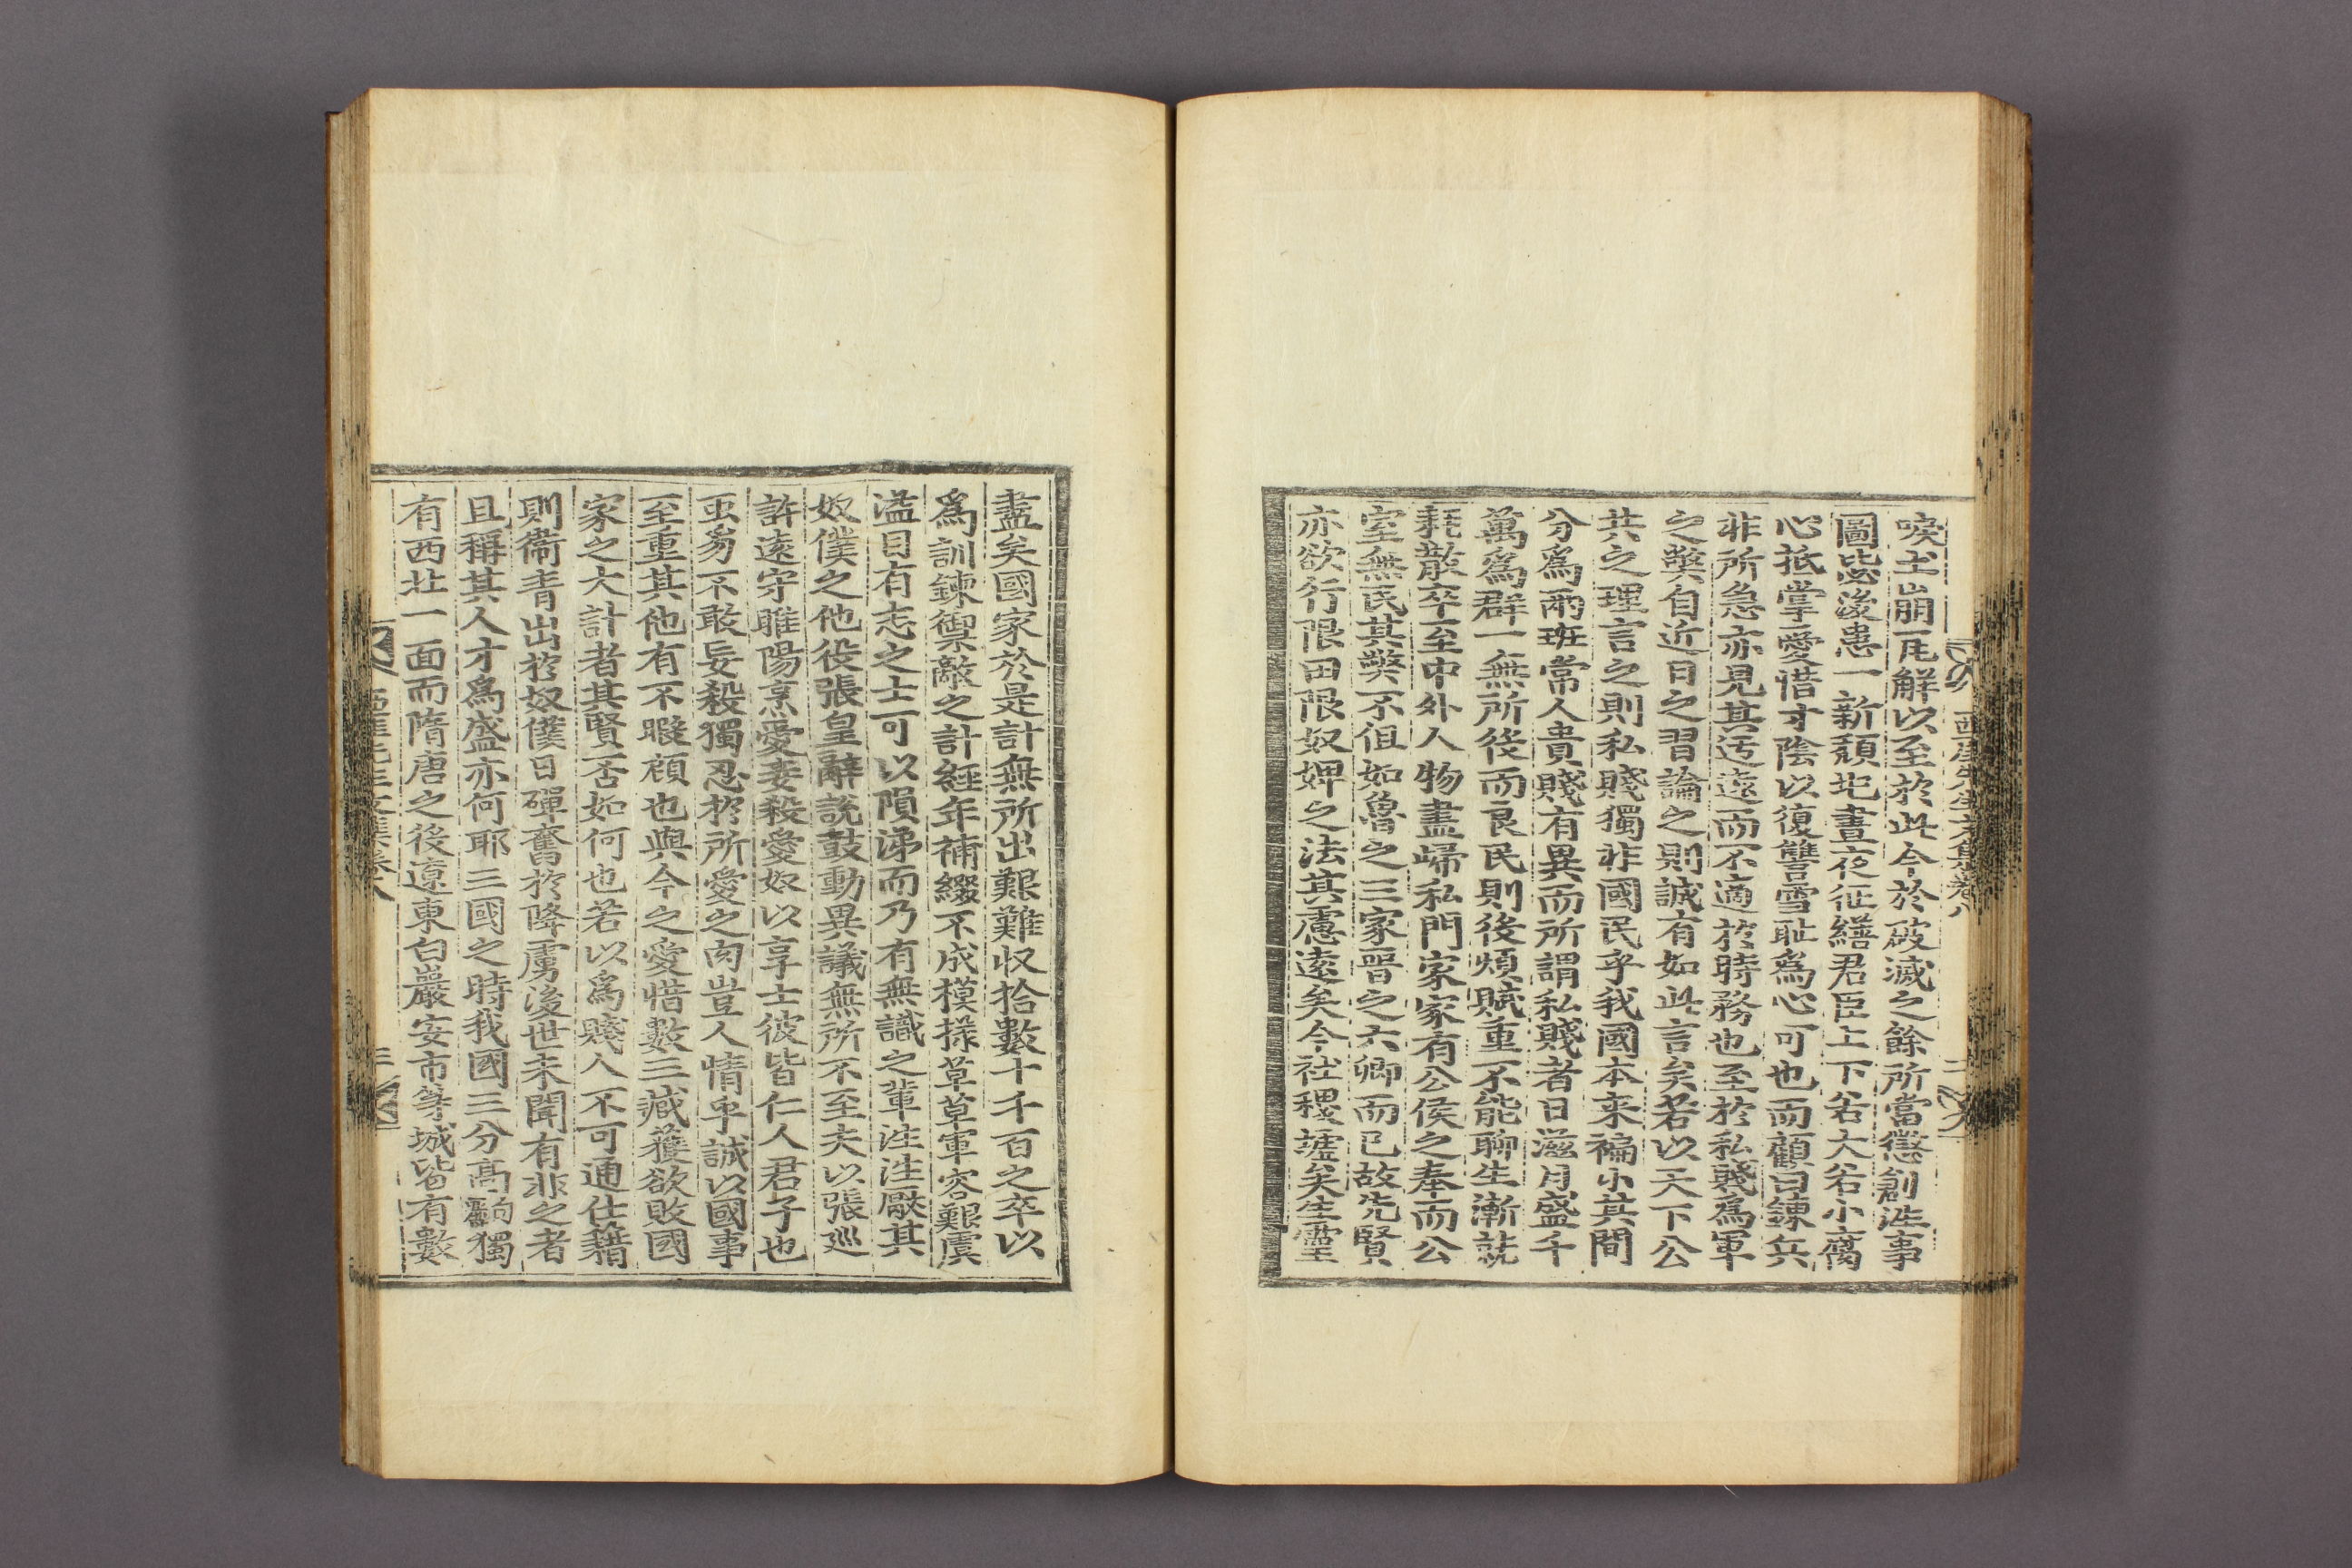 唉土崩瓦解以至於此今於破滅之餘所當懲創徃事
圖毖後患一新頽圯晝夜征繕君臣上下若大若小腐
心抵掌愛惜寸陰以復讐雪耻爲心可也而顧曰鍊兵
非所急亦見其迂遠而不適於時務也至於私賤爲軍
之弊自近日之習論之則誠有如此言矣若以天下公
共之理言之則私賤獨非國民乎我國本来褊小其間
分爲兩班常人貴賤有異而所謂私賤者日滋月盛千
萬爲群一無所後而良民則後煩賦重不能聊生漸就
耗散卒至中外人物盡歸私門家家有公侯之奉而公
室無民其弊不但如魯之三家晋之六卿而已故先賢
亦欲行限田限奴婢之法其慮遠矣今社稷墟矣生靈
西厓先生文集卷八 二
盡矣國家於是計無所出艱難収拾數十千百之卒以
爲訓鍊禦敵之計經年補綴不成模㨾草草軍容艱虞
溢目有志之士可以隕涕而乃有無識之輩徃徃厭其
奴僕之他役張皇辭說鼓動異議無所不至夫以張巡
許遠守睢陽烹愛妾殺愛奴以享士彼皆仁人君子也
䖝豸不敢妄殺獨忍於所愛之肉豈人情乎誠以國事
至重其他有不暇顧也與今之愛惜數三臧獲欲敗國
家之大計者其賢否如何也若以爲賤人不可通仕籍
則衛青出於奴僕日磾奮於降虜後世未聞有非之者
且稱其人才爲盛亦何耶三國之時我國三分高句麗獨
有西北一面而隋唐之後遼東白巖安市等城皆有數
西厓先生文集卷八 三